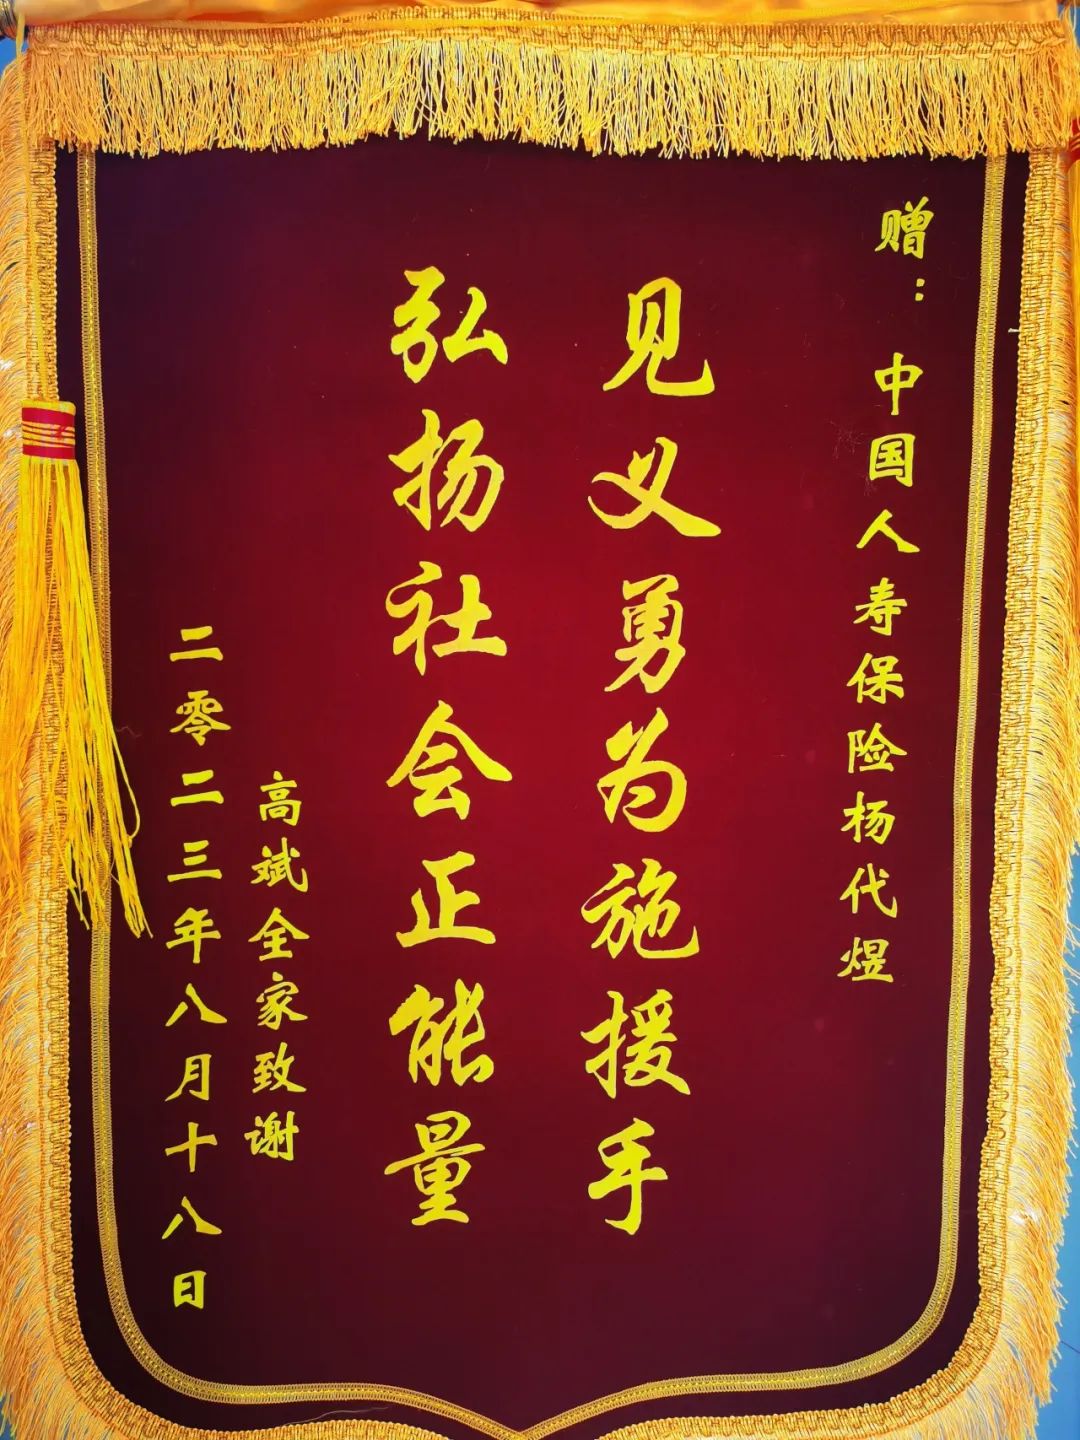 赠：中国人寿保险杨代煜
见义勇为施援手
弘扬社会正能量
高斌全家致谢
二零二三年八月十八日